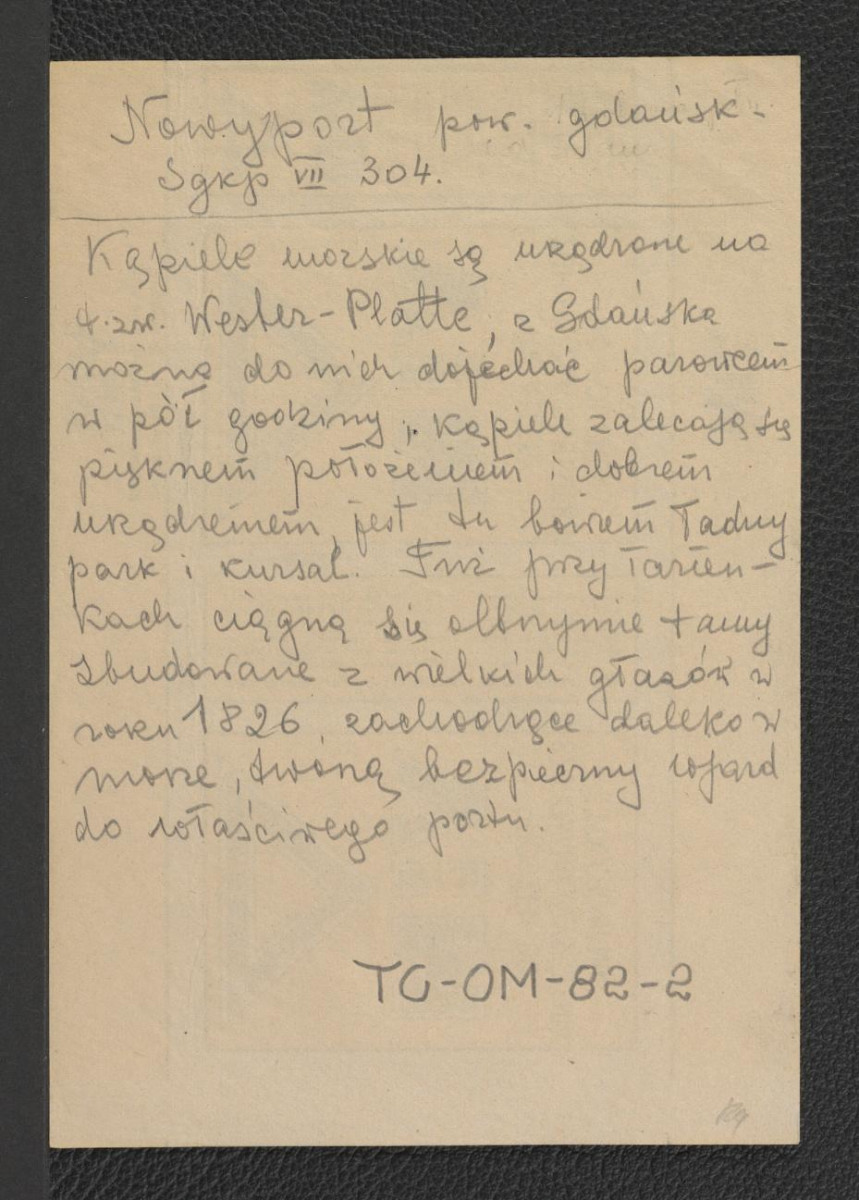 Nowyport pow. gdańsk.
Sgkp VII 304.
Kąpiele morskie są urządzone na
t. zw. Wester-Platte, z Gdańska
można do nich dojechać parowcem
w pół godziny, kąpiele zalecają się
pięknem położeniem i dobrem
urządzeniem, jest tu bowiem ładny
park i kursal. Tuż przy łazien-
kach ciągną się olbrzymie tamy
zbudowane z wielkich głazów w
roku 1826, zachodzące daleko w
morze, tworzą bezpieczny wjazd
do właściwego portu.
TG-OM-82-2